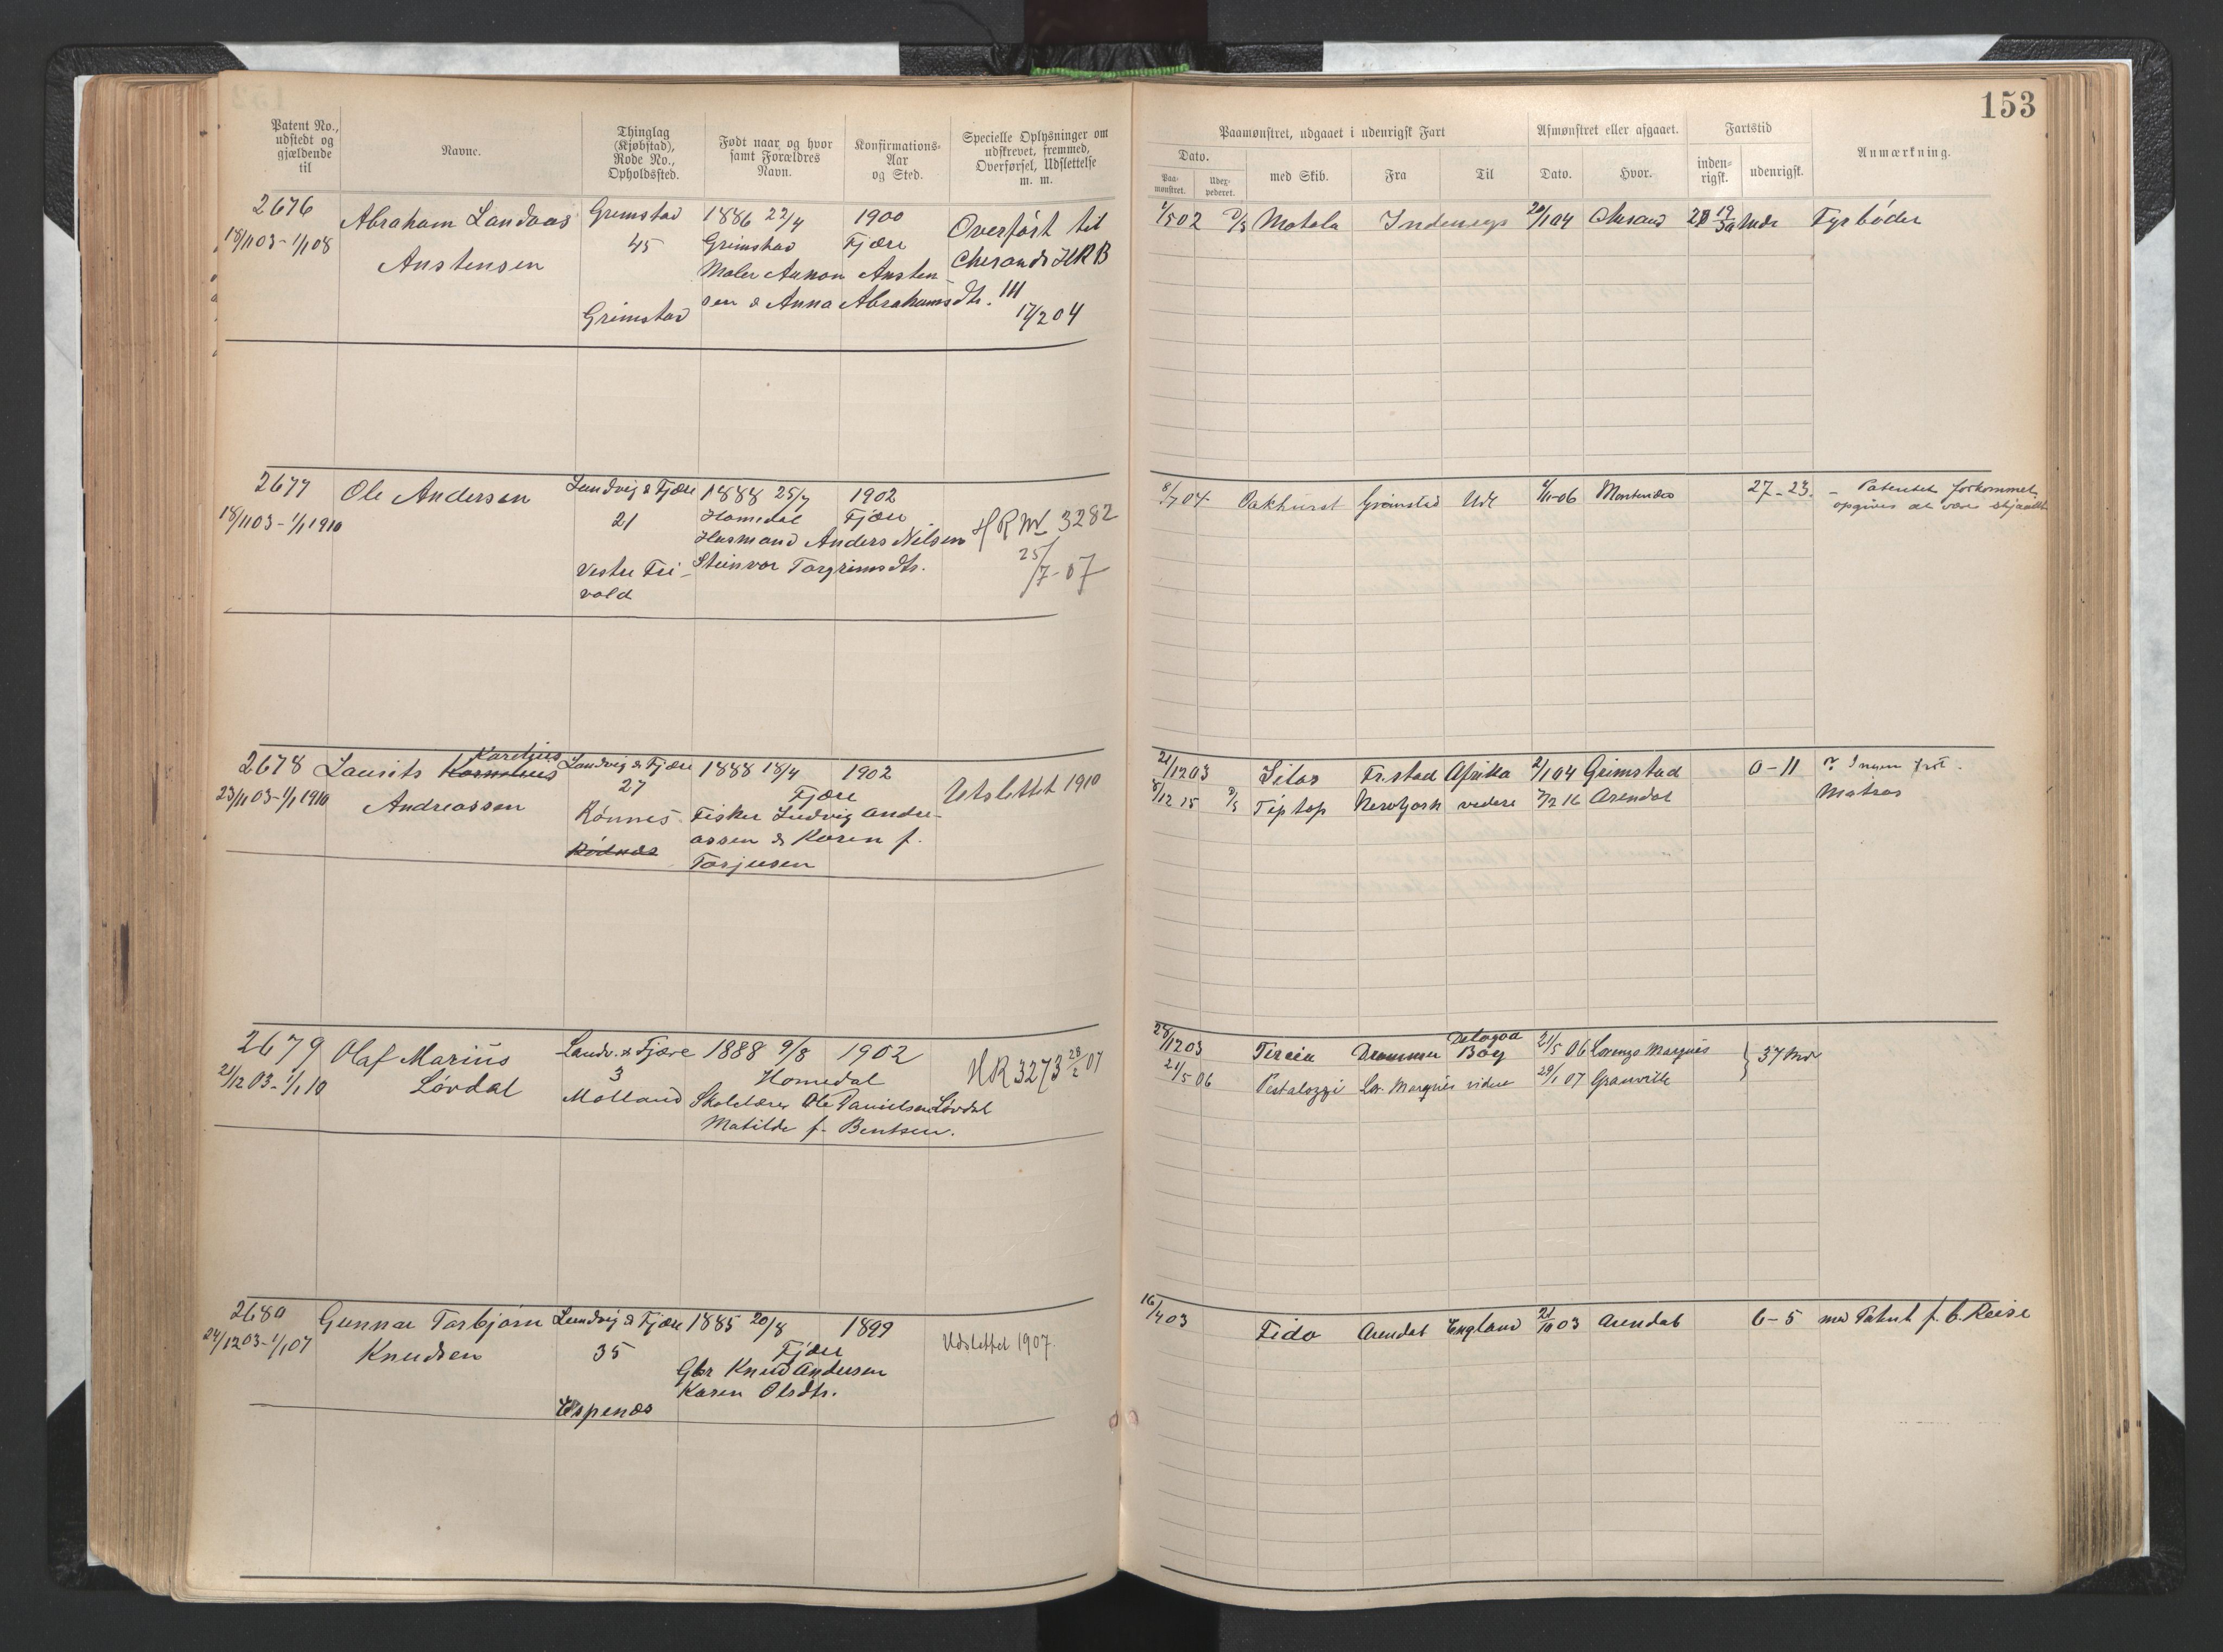 153
Patent No., udstedt og gjældende til
Navne.
Thinglag (Kjøbstad), Rode No., Opholdssted.
Født naar og hvor samt Forældres Navn.
Konfirmations-Aar og Sted.
Specielle Oplysninger om udskrevet, fremmed, Overførsel, Udslettelse m. m.
Paamønstret, udgaaet i udenrigsk Fart
Afmønstret eller afgaaet.
Fartstid
Anmærkning.
Dato.
Paa-mønstret.
Udex-pederet.
med Skib.
Fra
Til
Dato.
Hvor.
inden-rigsk.
udenrigsk.
2676
18/11 03 - 1/1 08
Abraham Landaas
Austensen
Grimstad
45
Grimstad
1886 22/4
Grimstad
Maler Aanon Austen
sen & Anna Abrahamsdtr.
1900
Fjære
Overført til
Chrsands HRB
III
17/2 04
1/5 02
Motala
Indenrigs
20/1 04
Chrsand
Fyrbøder
2677
18/11 03 - 1/1 1910
Ole Andersen
Landvig & Fjære
21
Vestre Fri-
vold
1888 25/7
Homedal
Husmand Anders Nilsen
Steinvor Torgrimsdtr.
1902
Fjære
HR No 3282
25/7-07
8/7 04
Oakhurst
Grimstad
Udl
Montevideo
27-23.
- Patentet forkommet,
opgives at være stjaalet
2678
23/11 03 - 1/1 1910
Laurits Kornelius
Karelius
Andreassen
Landvig & Fjære
27
Rønnes
Rødnes
1888 18/4
Fisker Ludvig Andre-
assen & Karen f.
Torjusen
1902
Fjære
Utslettet 1910
21/12 03
Silas
Fr.stad
Afrika
2/1 04
Grimstad
0-11
? Ingen
8/12 15
Tiptop
Newyork
videre
7/2 16
Arendal
Matros
2679
21/12 03 - 1/1 10
Olaf Marius
Løvdal
Landv. & Fjære
3
Molland
1888 9/8
Homedal
Skolelærer Ole Danielsen Løvdal
Matilde f. Bentsen.
1902
HR 3273 28/2 07
28/12 03
Drammen
Delagoa
Bay
21/5 06
Lorenzo Marques
37 Md
21/5 06
Pestalozzi
Lor. Marques
videre
29/1 07
Granville
2680
24/12 03 - 1/1 07
Gunnar Torbjørn
Knudsen
Landvig & Fjære
35
Espenæs
1885 20/8
Gbr Knud Andersen
Karen Olsdtr.
1899
Fjære
Udslettet 1907.
16/4 03
Fido
Arendal
England
21/10 03
Arendal
6-5
md Patent f. 6. Reise